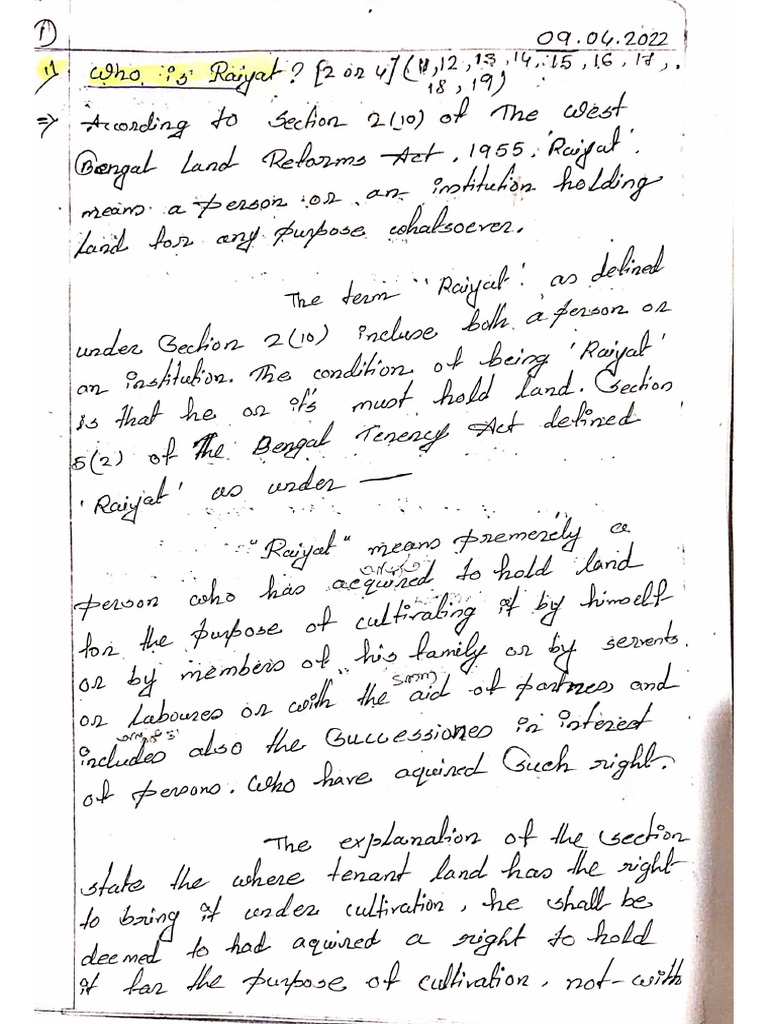 1 09.04.2022
1) Who is Raiyat? [2 or 4] (11, 12, 13, 14, 15, 16, 17,
18, 19)
⇒ According to Section 2(10) of The West
Bengal Land Reforms Act, 1955, 'Raiyat'
means a person or an institution holding
land for any purpose whatsoever.
The term "Raiyat" as defined
under Section 2(10) incluse both a person or
an institution. The condition of being 'Raiyat'
is that he or it's must hold land. Section
5(2) of The Bengal Tenency Act defined
'Raiyat' as under —
"Raiyat" means premerely a
person who has acquired to hold land
for the purpose of cultivating it by himself
or by members of his family or by servents
or Laboures or with the aid of partnes and
includes also the Successiones in interest
of persons. who have aquired Such right.
The explanation of the section
state the where tenant land has the right
to bring it under cultivation, he shall be
deemed to had aquired a right to hold
it for the purpose of cultivation, not-with